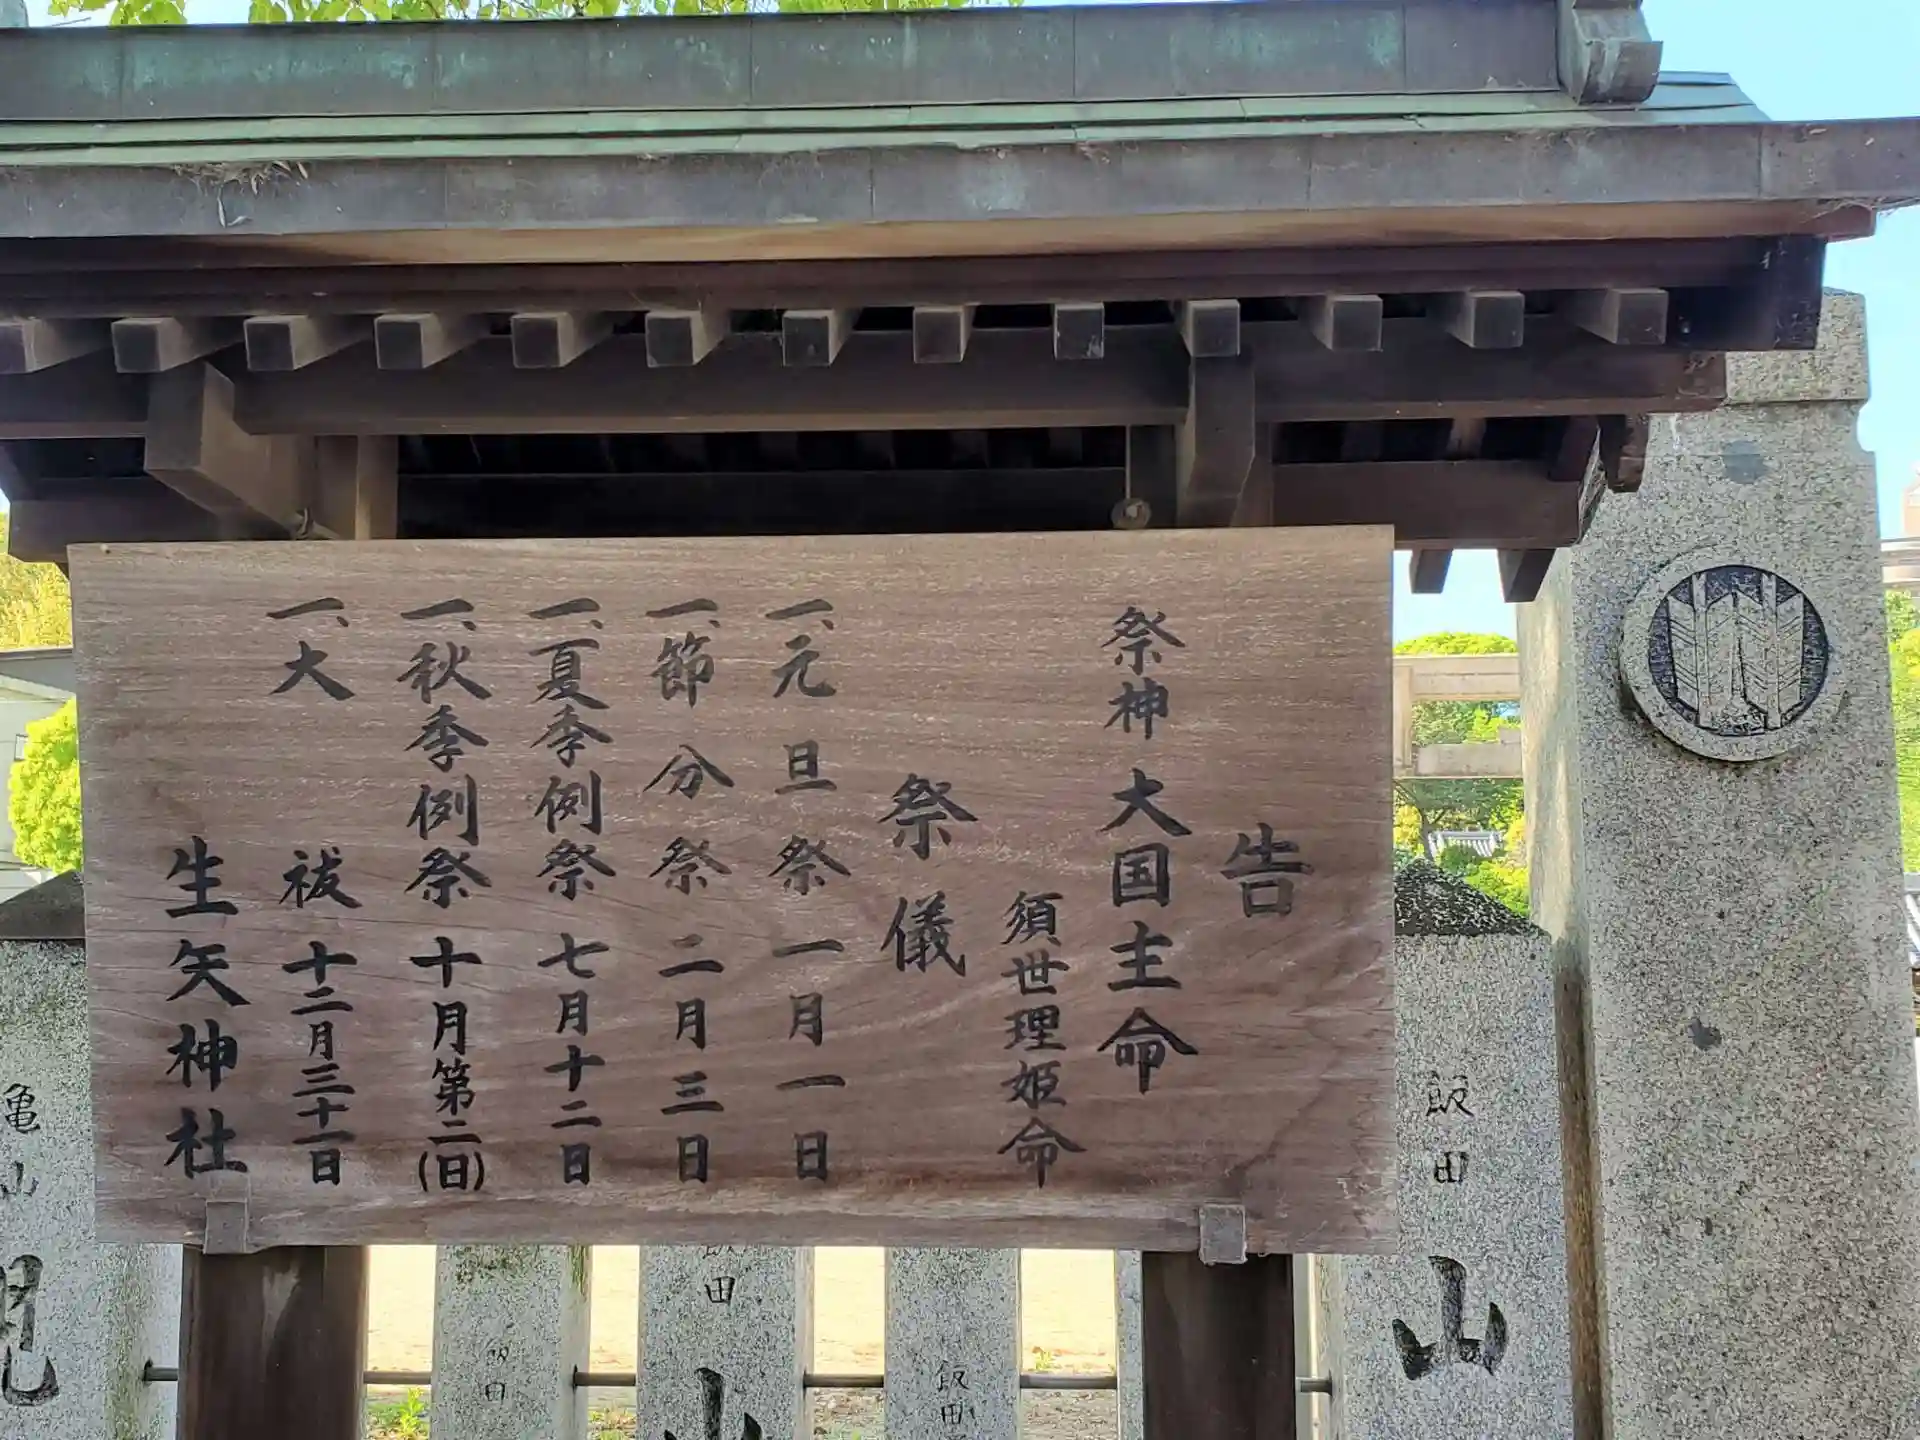 告
祭神 大国主命
須世理姫命
祭儀
一、元旦祭 一月一日
一、節分祭 二月三日
一、夏季例祭 七月十二日
一、秋季例祭 十月第二(日)
一、大祓 十二月三十一日
生矢神社
飯田
山
飯田
飯田
山
亀山